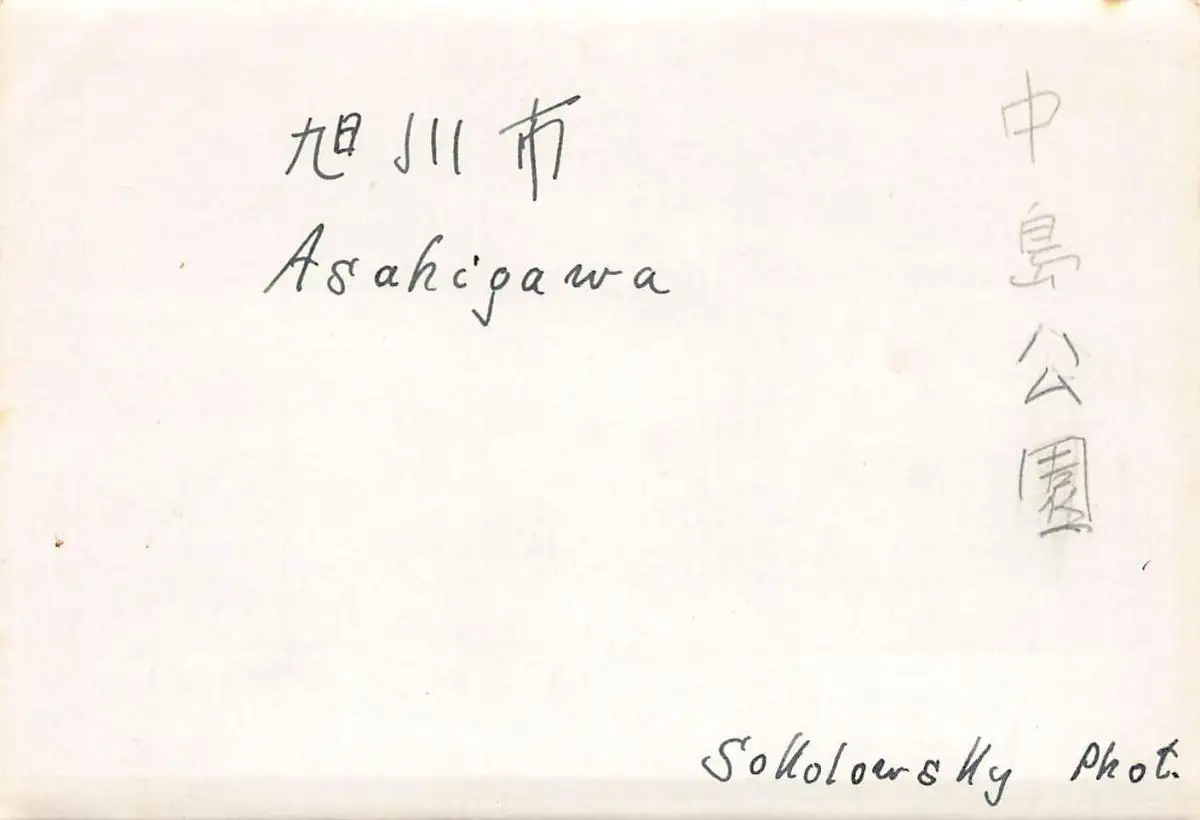 旭川市
Asahigawa
中島公園
Sokolowsky Phot.